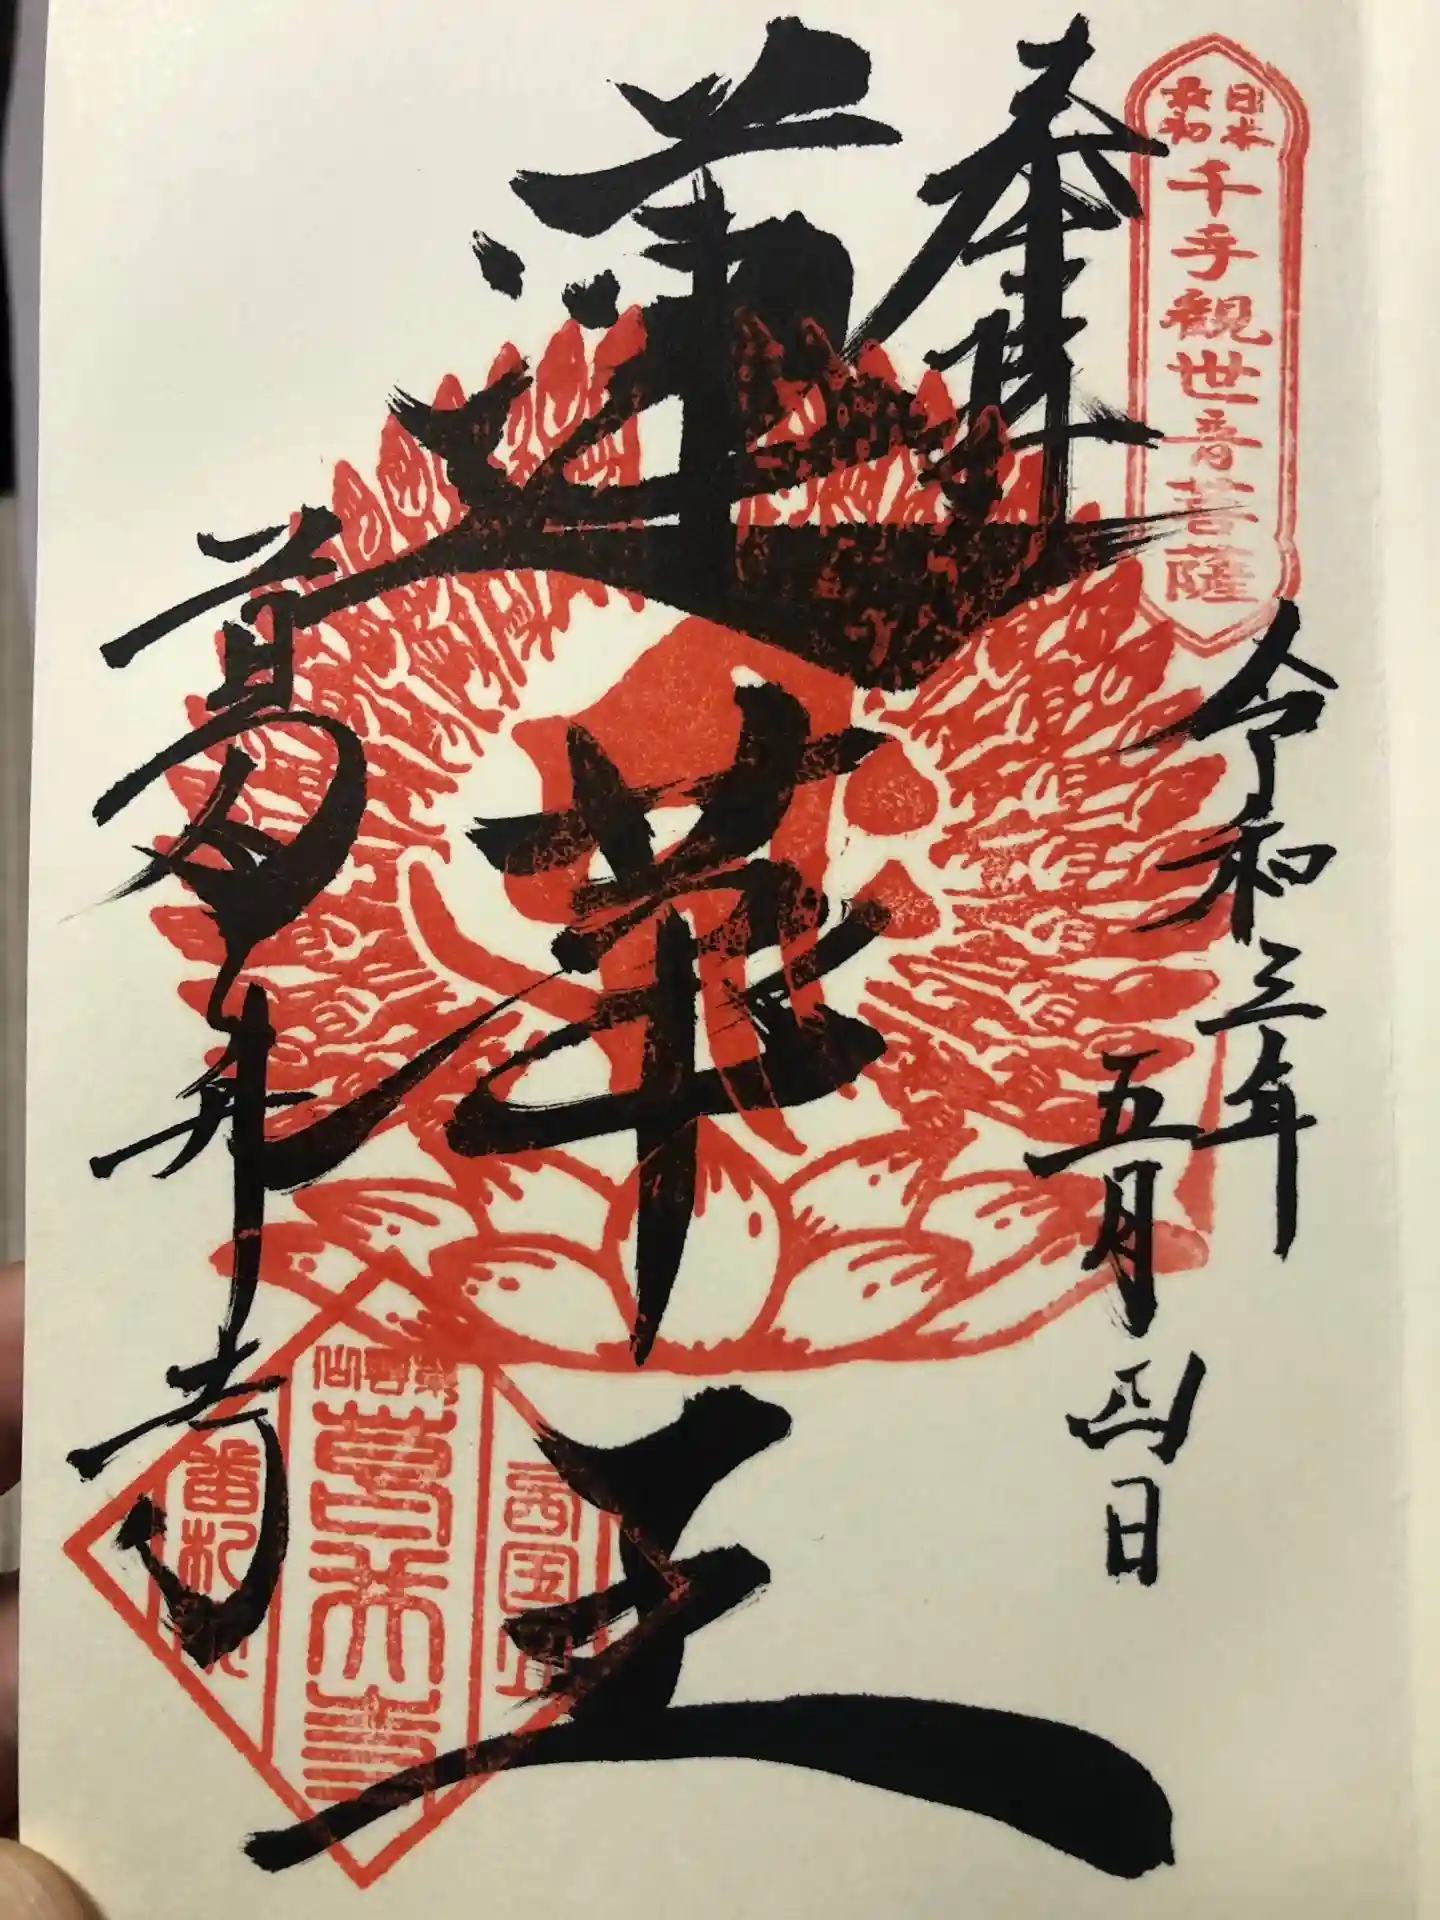 日本
最初
千手観世音菩薩
奉拝
令和三年
五月四日
蓮華王
葛井寺
西国五
葛井寺
番札所